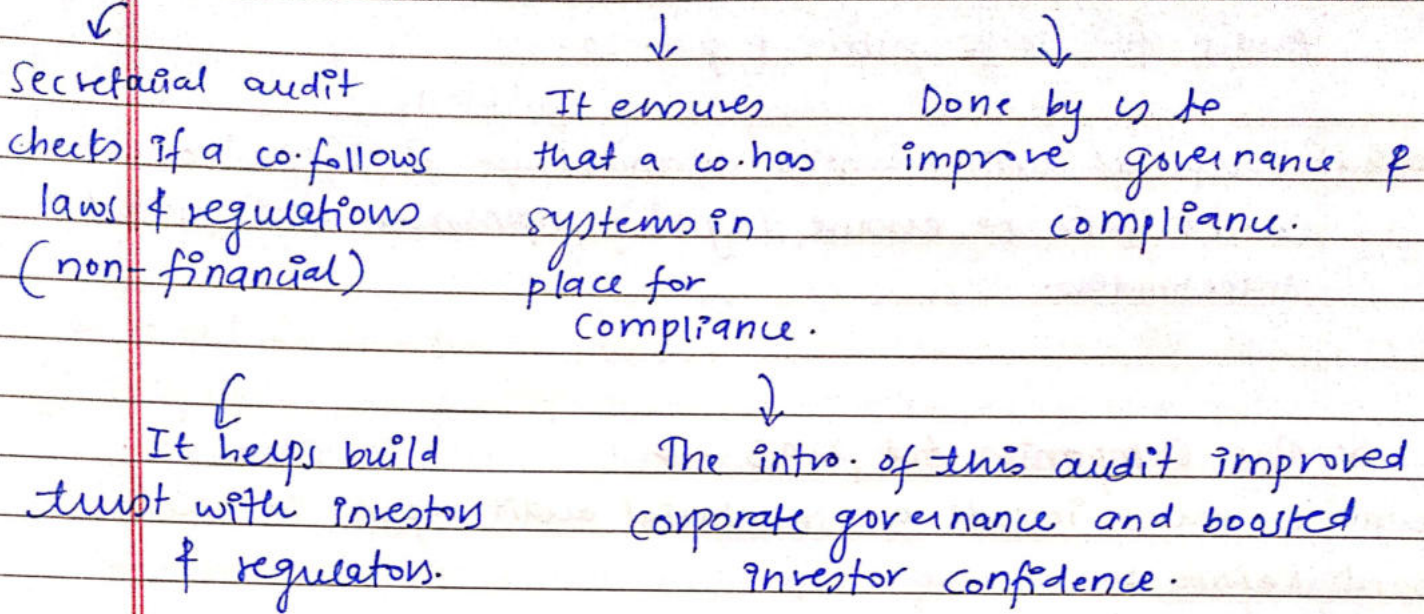 Secretarial audit
checks if a co. follows
laws & regulations
(non-financial)
It ensures
that a co. has
systems in
place for
compliance.
Done by cs to
improve governance &
compliance.
It helps build
trust with investors
& regulators.
The intro. of this audit improved
corporate governance and boosted
investor confidence.